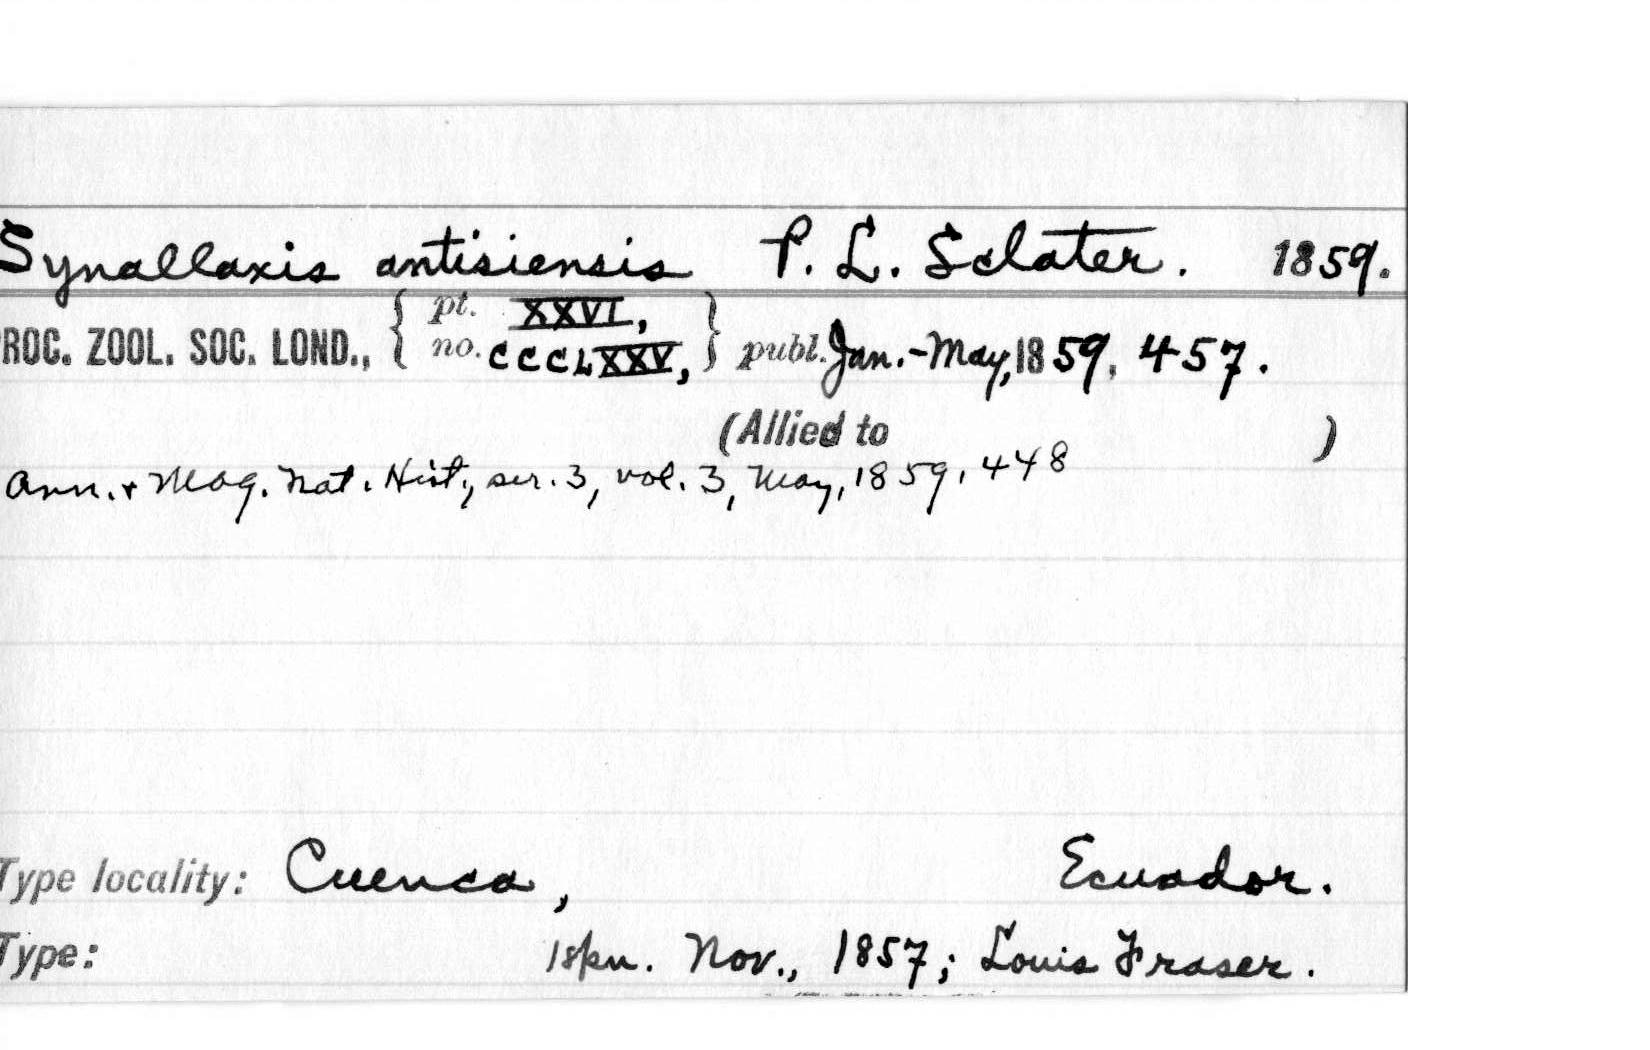 Synallaxis antisiensis P. L. Sclater. 1859.
PROC. ZOOL. SOC. LOND., { pt. XXVI, no. CCCLXXV, } publ. Jan.-May, 1859, 457.
(Allied to )
Ann. + Mag. Nat. Hist., ser. 3, vol. 3, May, 1859, 448
Type locality: Cuenca, Ecuador.
Type: 1 spn. Nov., 1857; Louis Fraser.